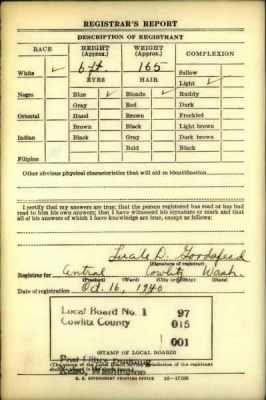 REGISTRAR'S REPORT
DESCRIPTION OF REGISTRANT
RACE HEIGHT (Approx.) WEIGHT (Approx.) COMPLEXION
White ✓ 6 ft 165 Sallow
EYES HAIR Light ✓
Negro Blue ✓ Blonde ✓ Ruddy
Gray Red Dark
Oriental Hazel Brown Freckled
Brown Black Light brown
Indian Black Gray Dark brown
Bald Black
Filipino
Other obvious physical characteristics that will aid in identification
I certify that my answers are true; that the person registered has read or has had
read to him his own answers; that I have witnessed his signature or mark and that
all of his answers of which I have knowledge are true, except as follows:
D.
(Signature of registrar)
Registrar for Central Cowlitz Wash.
(Precinct) (Ward) (City or county) (State)
Date of registration Oct. 16, 1940
Local Board No. 1 97
Cowlitz County 015
001
Post Office Building
Kelso, Washington
(STAMP OF LOCAL BOARD)
U. S. GOVERNMENT PRINTING OFFICE 16-17105